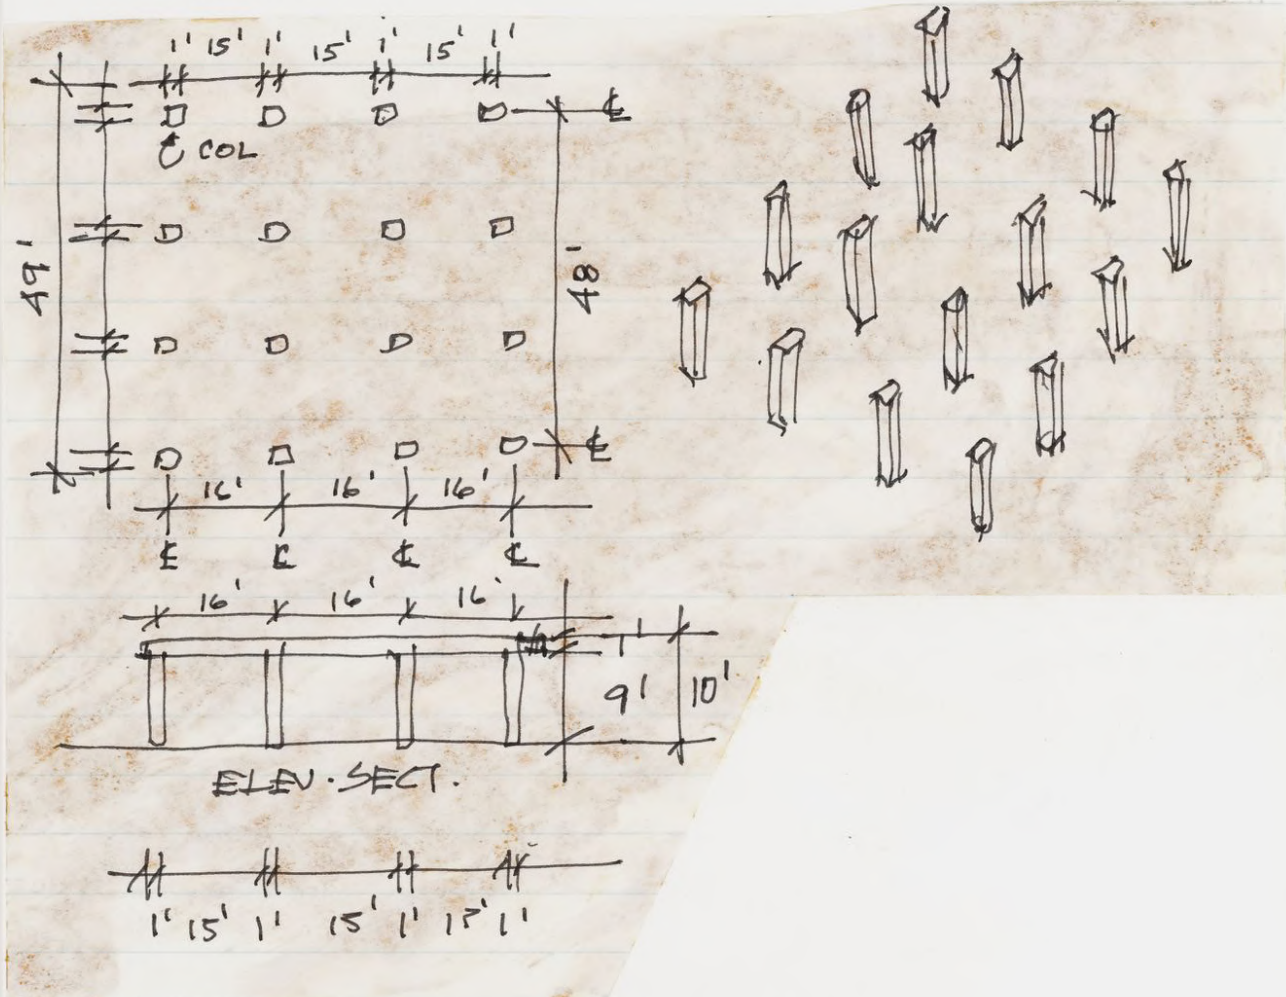 1' 15' 1' 15' 1' 15' 1'
℄
COL
49'
48'
℄
16' 16' 16'
℄ ℄ ℄ ℄
16' 16' 16'
1'
9' 10'
ELEV. SECT.
1' 15' 1' 15' 1' 15' 1'